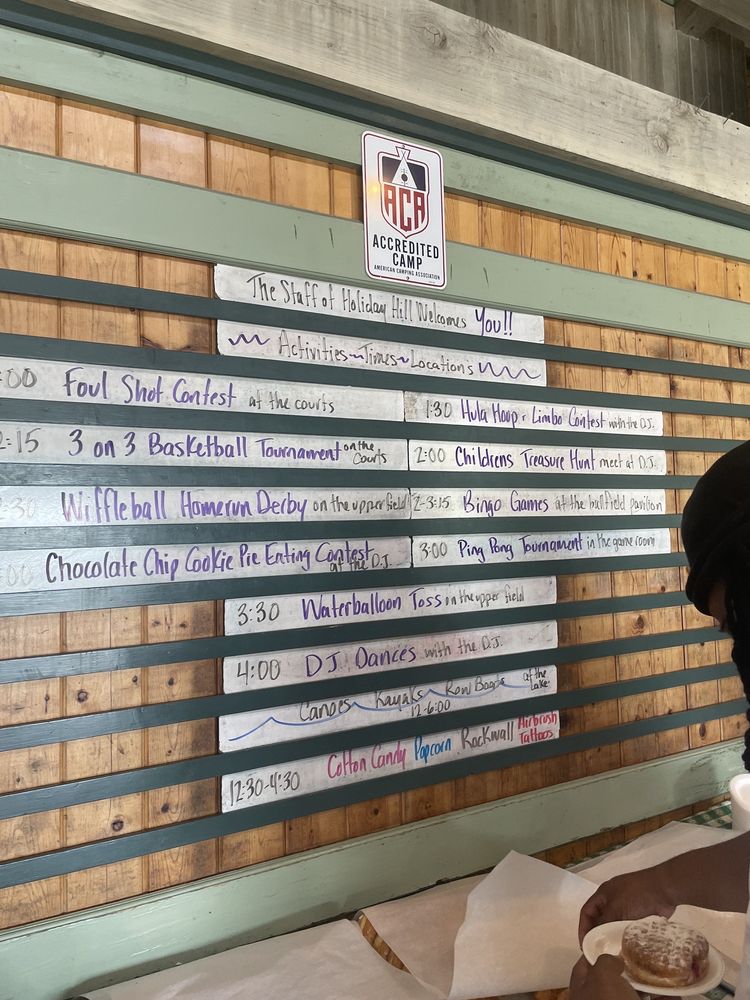 ACA
ACCREDITED
CAMP
AMERICAN CAMPING ASSOCIATION
The Staff of Holiday Hill Welcomes You!!
Activities~Times~Locations
:00 Foul Shot Contest at the courts
1:30 Hula Hoop & Limbo Contest with the D.J.
2:15 3 on 3 Basketball Tournament on the Courts
2:00 Childrens Treasure Hunt meet at D.J.
:30 Wiffleball Homerun Derby on the upper field
2-3:15 Bingo Games at the ballfield pavilion
:00 Chocolate Chip Cookie Pie Eating Contest at the D.J.
3:00 Ping Pong Tournament in the game room
3:30 Waterballoon Toss on the upper field
4:00 D.J. Dances with the D.J.
Canoes Kayaks Row Boats at the Lake
12-6:00
12:30-4:30 Cotton Candy Popcorn Rockwall Airbrush Tattoos